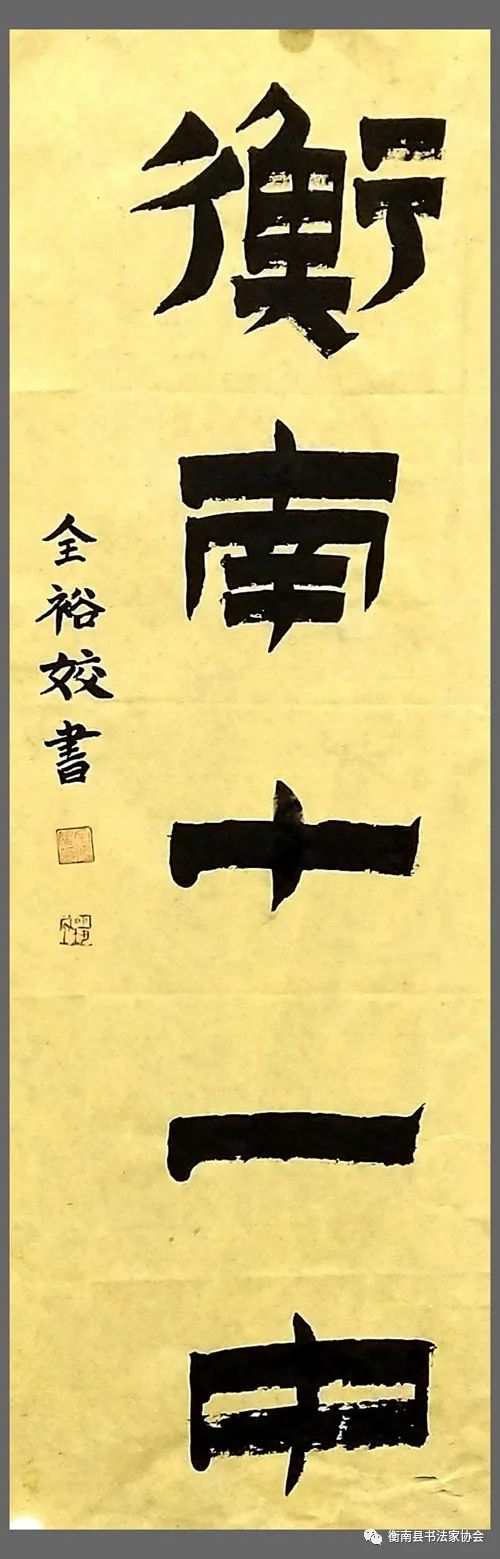 衡南十一中
全裕姣書
衡南县书法家协会